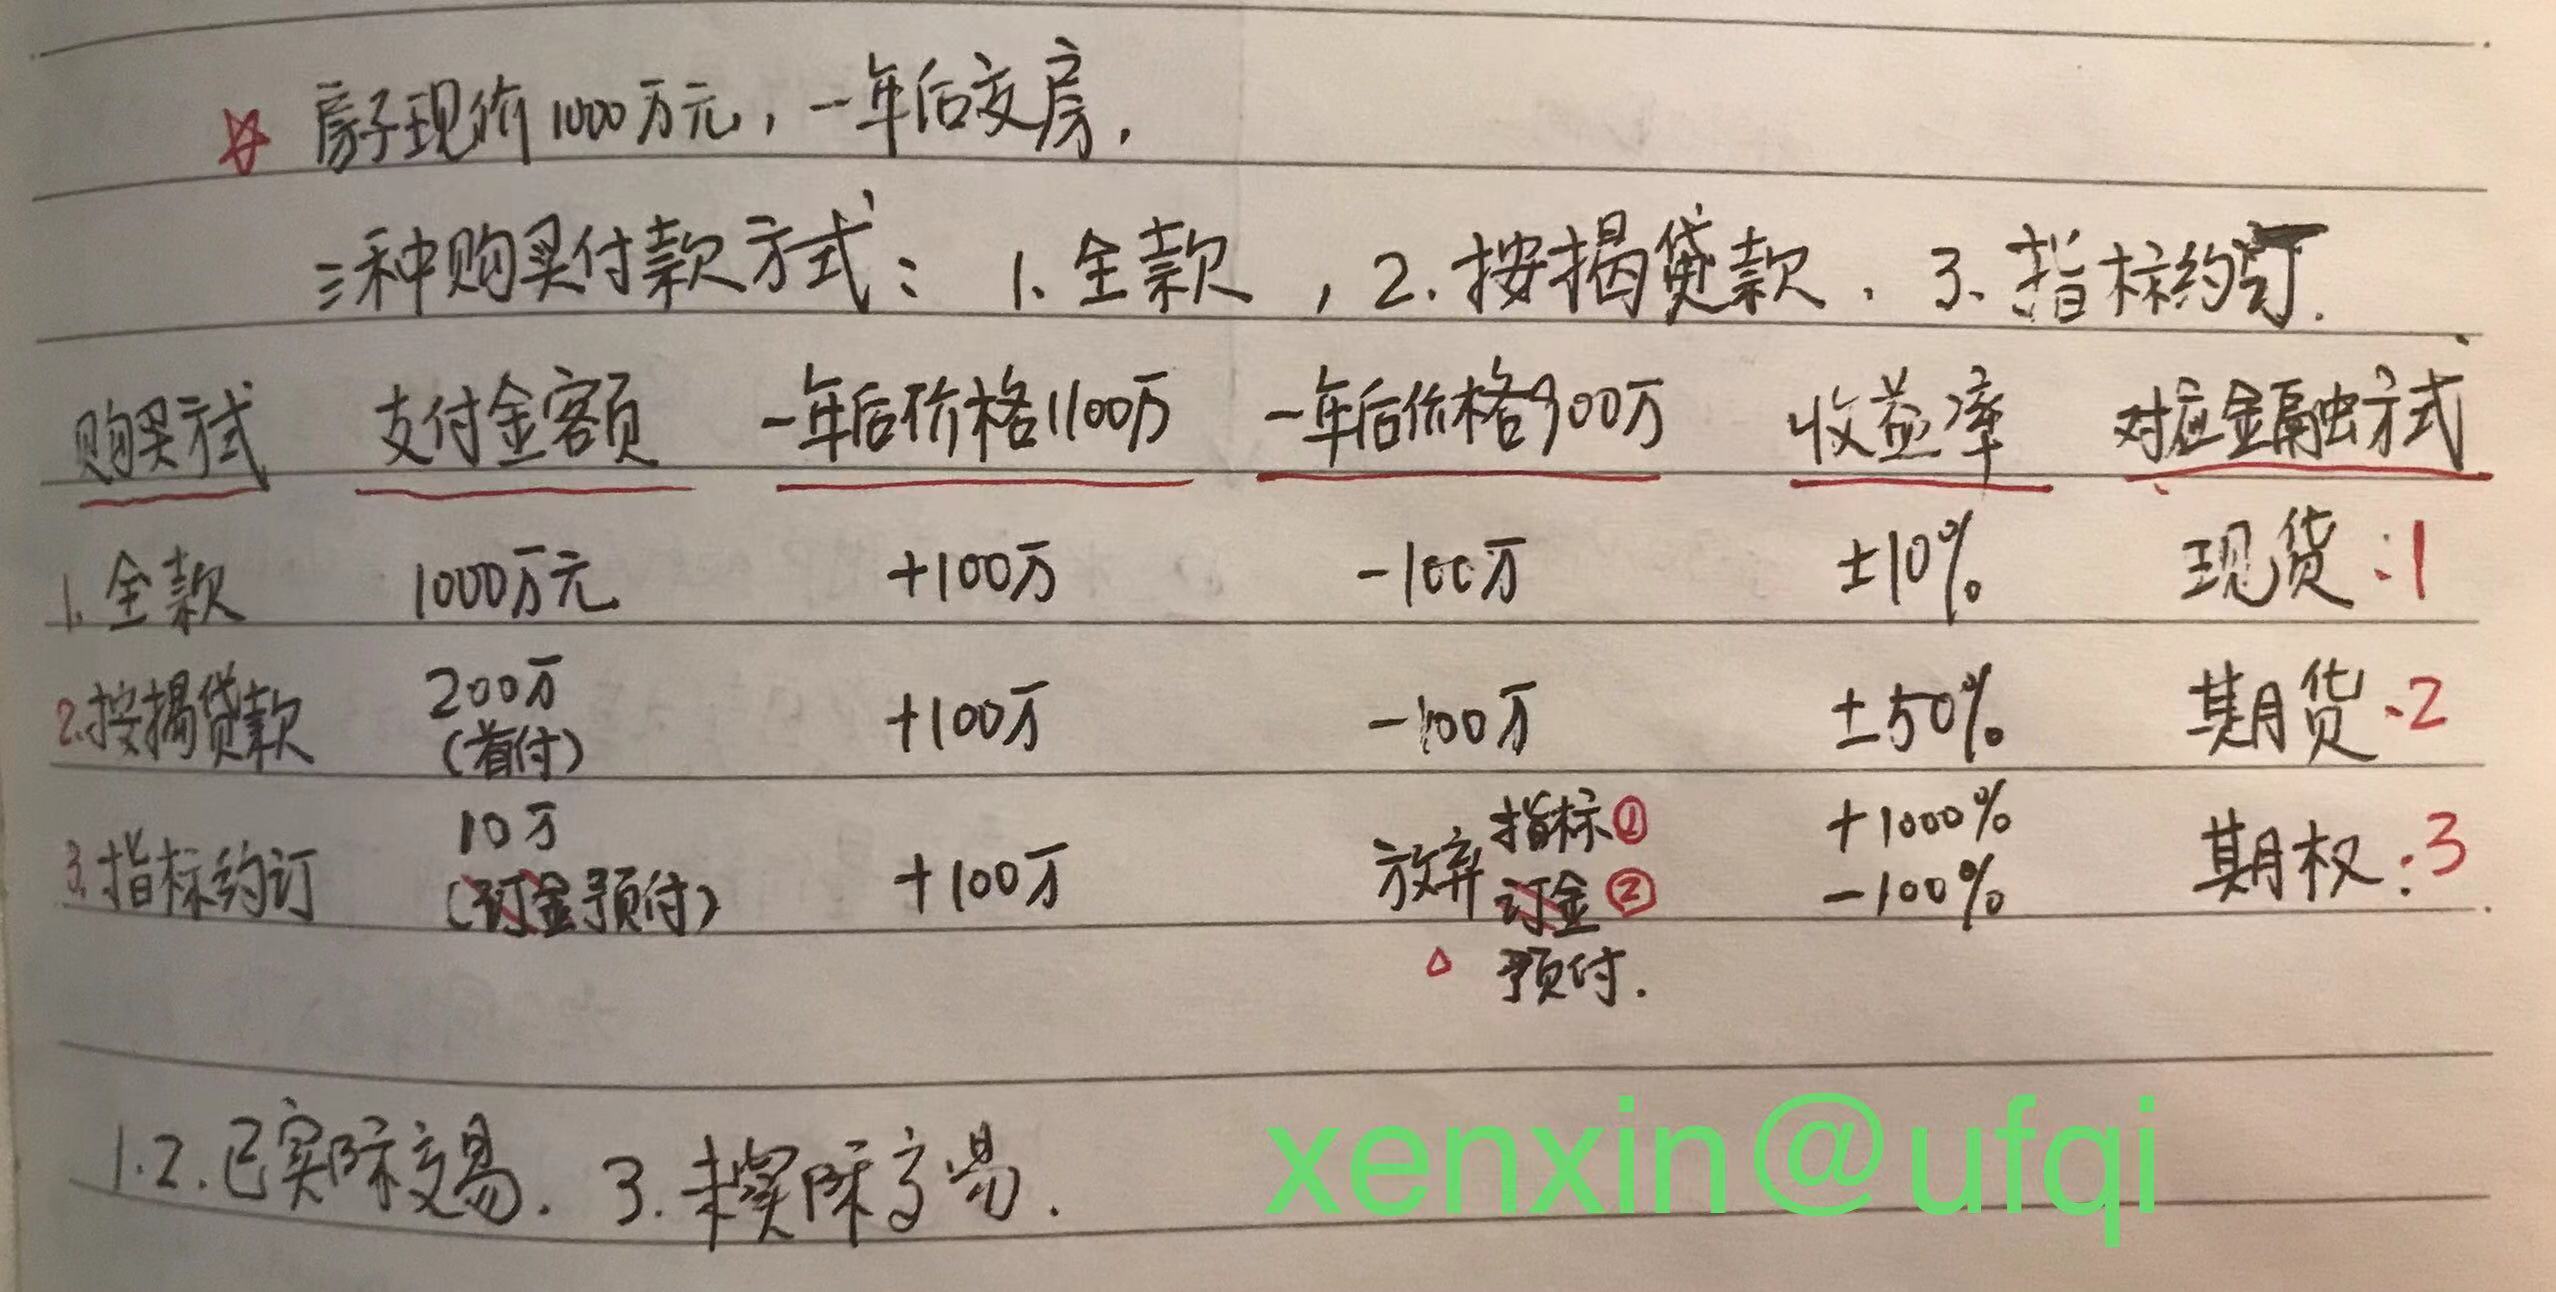 ☆ 房子现价1000万元，一年后交房，
三种购买付款方式：1、全款，2、按揭贷款、3、指标约订.
购买方式 支付金额 一年后价格1100万 一年后价格900万 收益率 对应金融方式
1、全款 1000万元 +100万 -100万 ±10% 现货:1
2.按揭贷款 200万(首付) +100万 -100万 ±50% 期货:2
3.指标约订 10万(订金预付) +100万 放弃 指标① 订金② △ 预付. +1000% -100% 期权:3
1.2.已实际交易. 3.未实际交易.
xenxin@ufqi